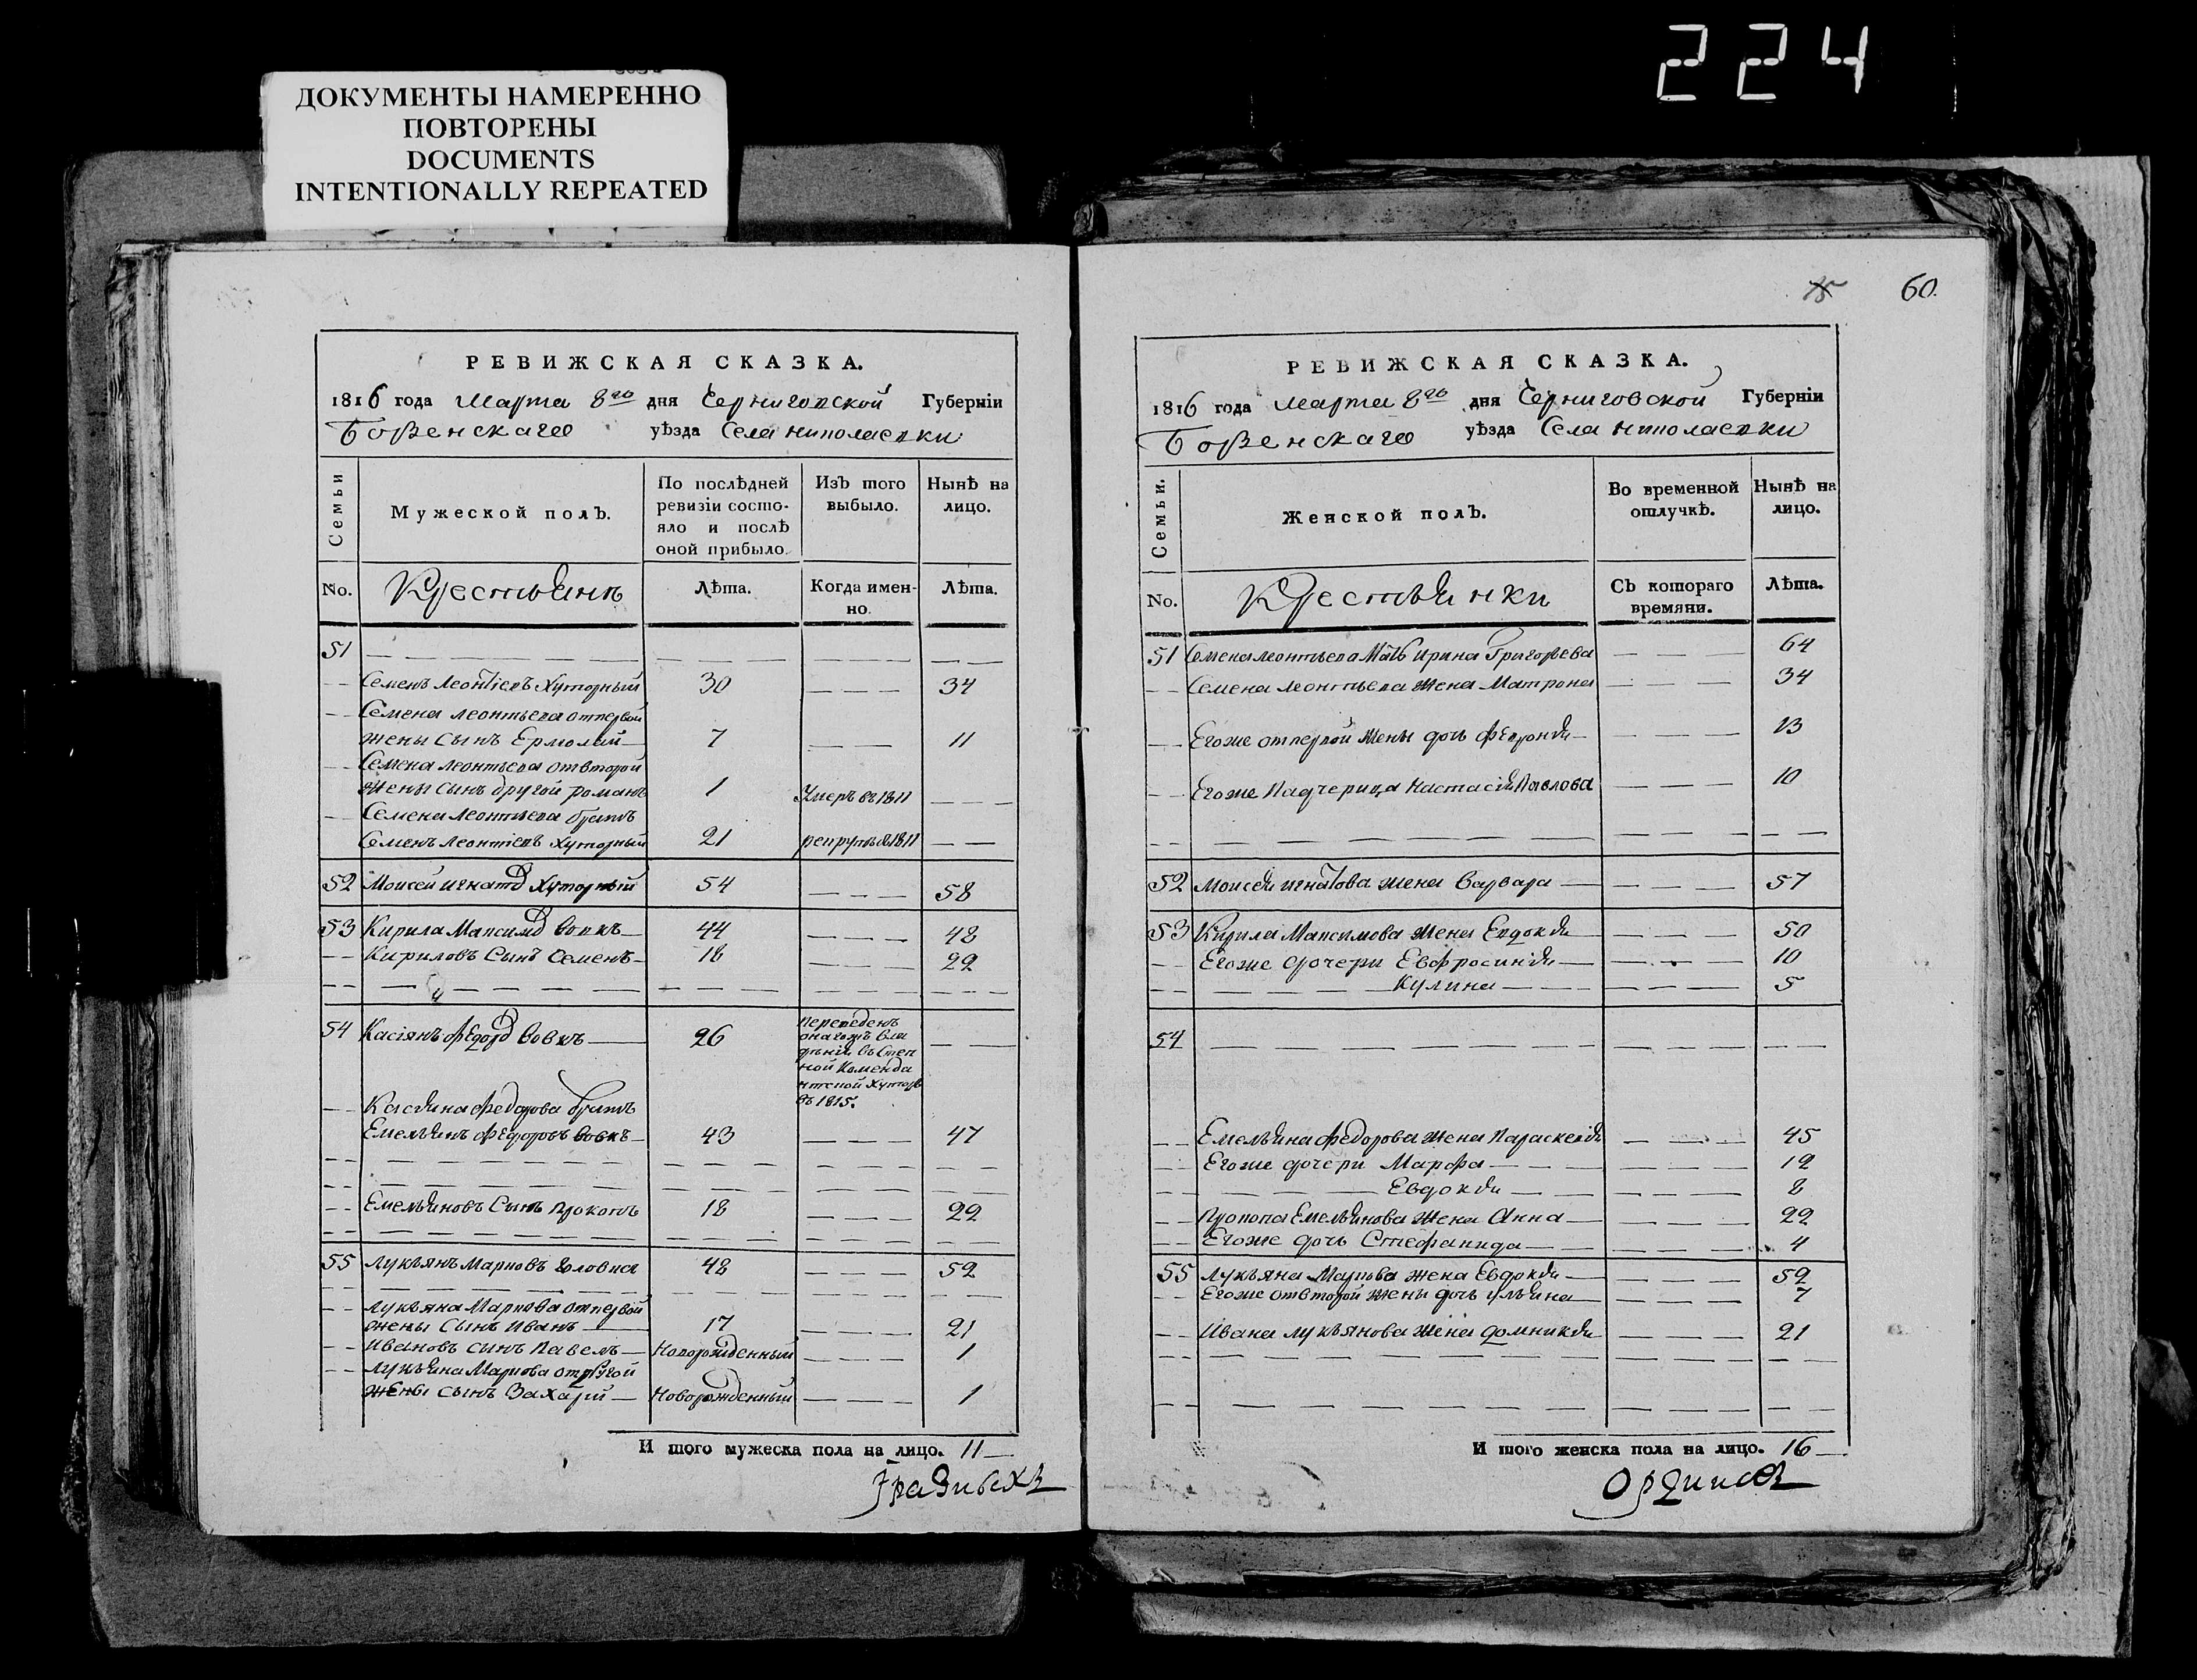 224
ДОКУМЕНТЫ НАМЕРЕННО
ПОВТОРЕНЫ
DOCUMENTS
INTENTIONALLY REPEATED
РЕВИЖСКАЯ СКАЗКА.
1816 года Марта 8го дня Черниговской Губерніи
Борзенскаго уѣзда Села Николаевки
Семьи
Мужеской полъ.
По послѣдней
ревизіи состо-
яло и послѣ
оной прибыло.
Изъ того
выбыло.
Нынѣ на
лицо.
No.
Крестьянъ
Лѣта.
Когда имен-
но.
Лѣта.
51
Семенъ Леонтіевъ Хуторный 30 34
Семена Леонтьева отпервой
жены Сынъ Ермолай 7 11
Семена Леонтьева отвторой
жены Сынъ другой романъ 1 Умеръ въ 1811
Семена Леонтьева братъ
Семенъ Леонтіевъ Хуторный 21 рекрутъ въ 1811
52 Моисей игнатов Хуторный 54 58
53 Кирила Максимов Вовкъ 44 48
Кириловъ Сынъ Семенъ 18 22
54 Касіянъ Федоров Вовкъ 26 Переведенъ
въ Степ
ной Коменда
нтской Хуторъ
въ 1815.
Касяна Федорова братъ
Емельянъ Федоровъ Вовкъ 43 47
Емельяновъ Сынъ Прокопъ 18 22
55 Лукьянъ Марковъ Головка 48 52
Лукьяна Маркова отпервой
жены Сынъ Иванъ 17 21
Ивановъ сынъ Павелъ Новорожденный 1
Лукьяна Маркова отдругой
жены сынъ Захарій Новорожденный 1
И того мужеска пола на лицо. 11
60.
РЕВИЖСКАЯ СКАЗКА.
1816 года Марта 8го дня Черниговской Губерніи
Борзенскаго уѣзда Села Николаевки
Семьи.
Женской полъ.
Во временной
отлучкѣ.
Нынѣ на
лицо.
No.
Крестьянки
Съ котораго
времяни.
Лѣта.
51 Семена Леонтьева Мать Ирина Григорьева 64
Семена Леонтьева жена Матрона 34
Егоже отпервой жены дочь Февронія 13
Егоже Падчерица Настасія Павлова 10
52 Моисея игнатова жена Варвара 57
53 Кирила Максимова жена Евдокия 50
Егоже дочери Евфросинія 10
Кулина 5
54
Емельяна Федорова жена Параскевія 45
Егоже дочери Марфа 12
Евдокия 8
Прокопа Емельянова жена Анна 22
Егоже дочь Стефанида 4
55 Лукьяна Маркова жена Евдокия 52
Егоже отвторой жены дочь Ульяна 7
Ивана Лукьянова жена Домникия 21
И того женска пола на лицо. 16